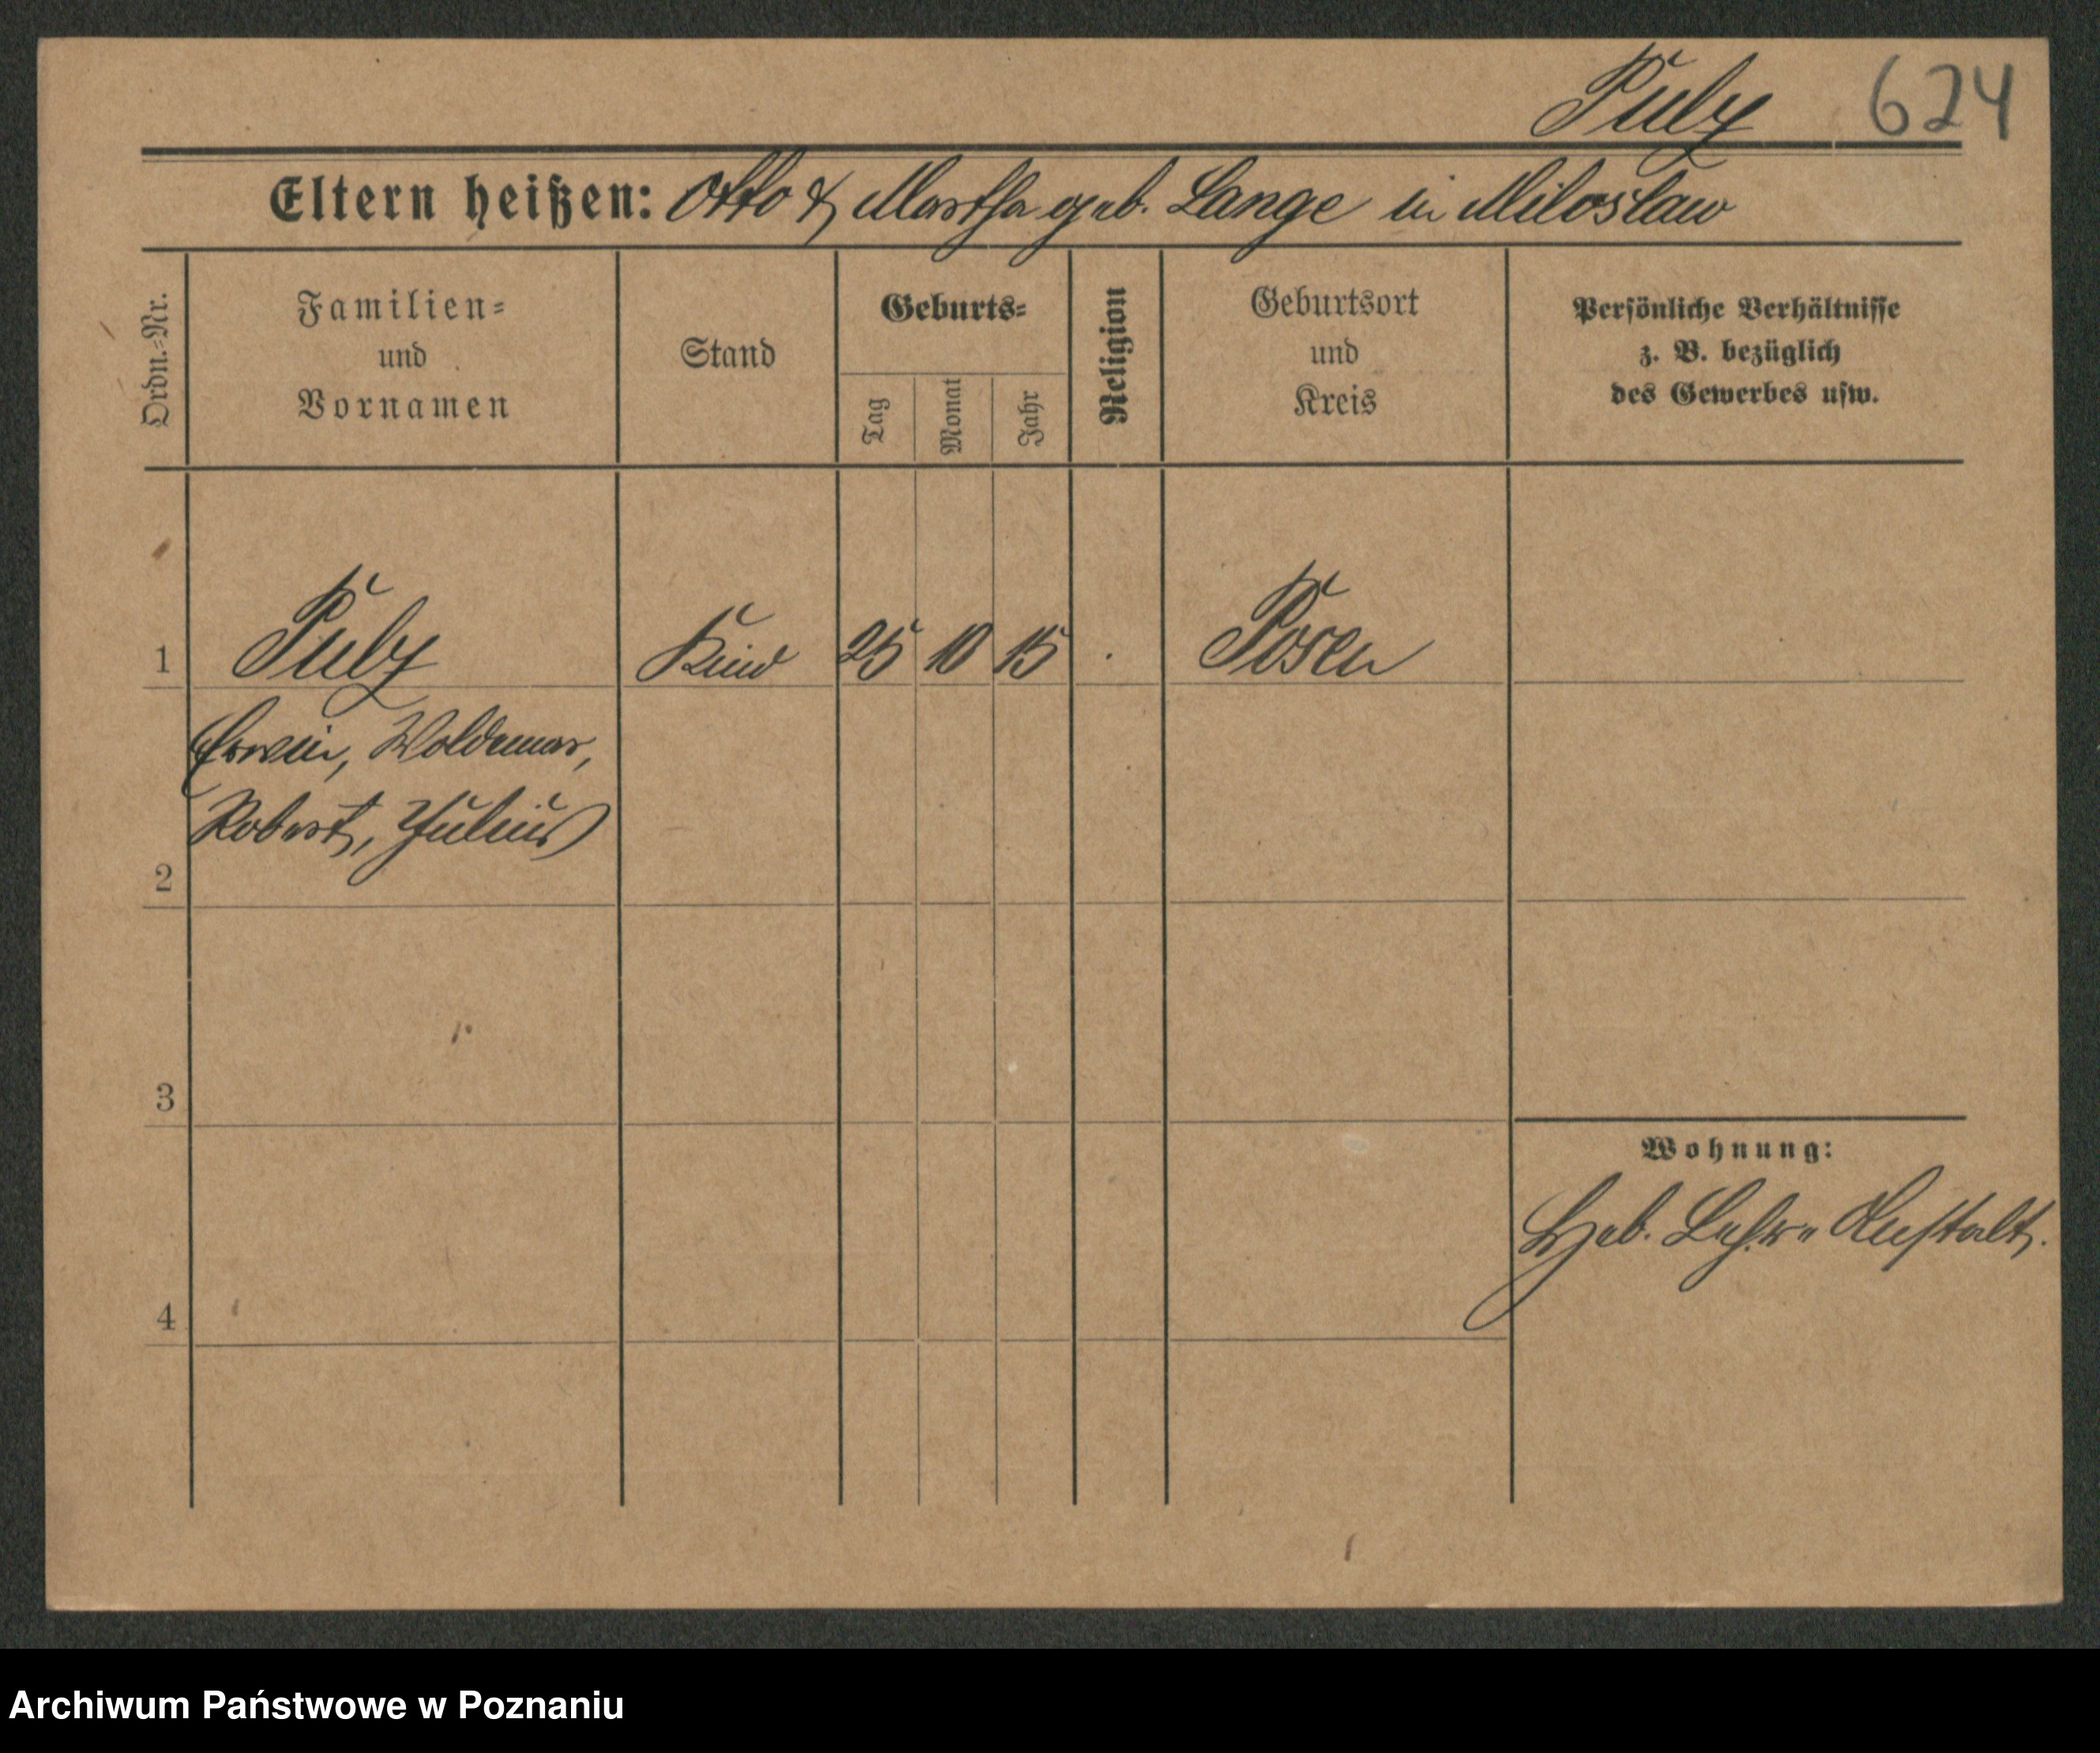 Pulz 624
Eltern heißen: Otto & Martha geb. Lange in Miloslaw
Ordn.=Nr.
Familien=
und
Vornamen
Stand
Geburts=
Tag
Monat
Jahr
Religion
Geburtsort
und
Kreis
Persönliche Verhältnisse
z. B. bezüglich
des Gewerbes usw.
1 Kind 25 10 15 . Posen
Erwin, Woldemar,
Robert, Julius
2
3
4
Wohnung:
Heb. Lehr= Anstalt.
Archiwum Państwowe w Poznaniu